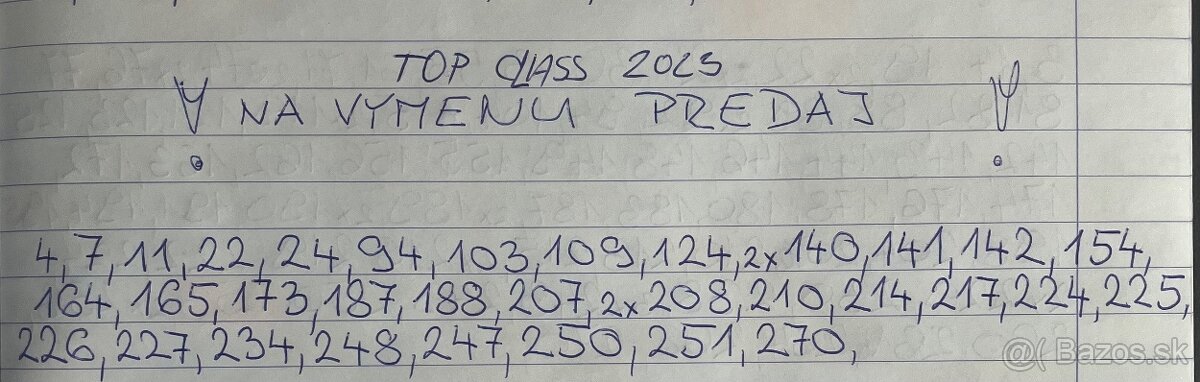 TOP CLASS 2025
! NA VYMENU PREDAJ !
4, 7, 11, 22, 24, 94, 103, 109, 124, 2x 140, 141, 142, 154,
164, 165, 173, 187, 188, 207, 2x 208, 210, 214, 217, 224, 225,
226, 227, 234, 248, 247, 250, 251, 270,
@( Bazos.sk